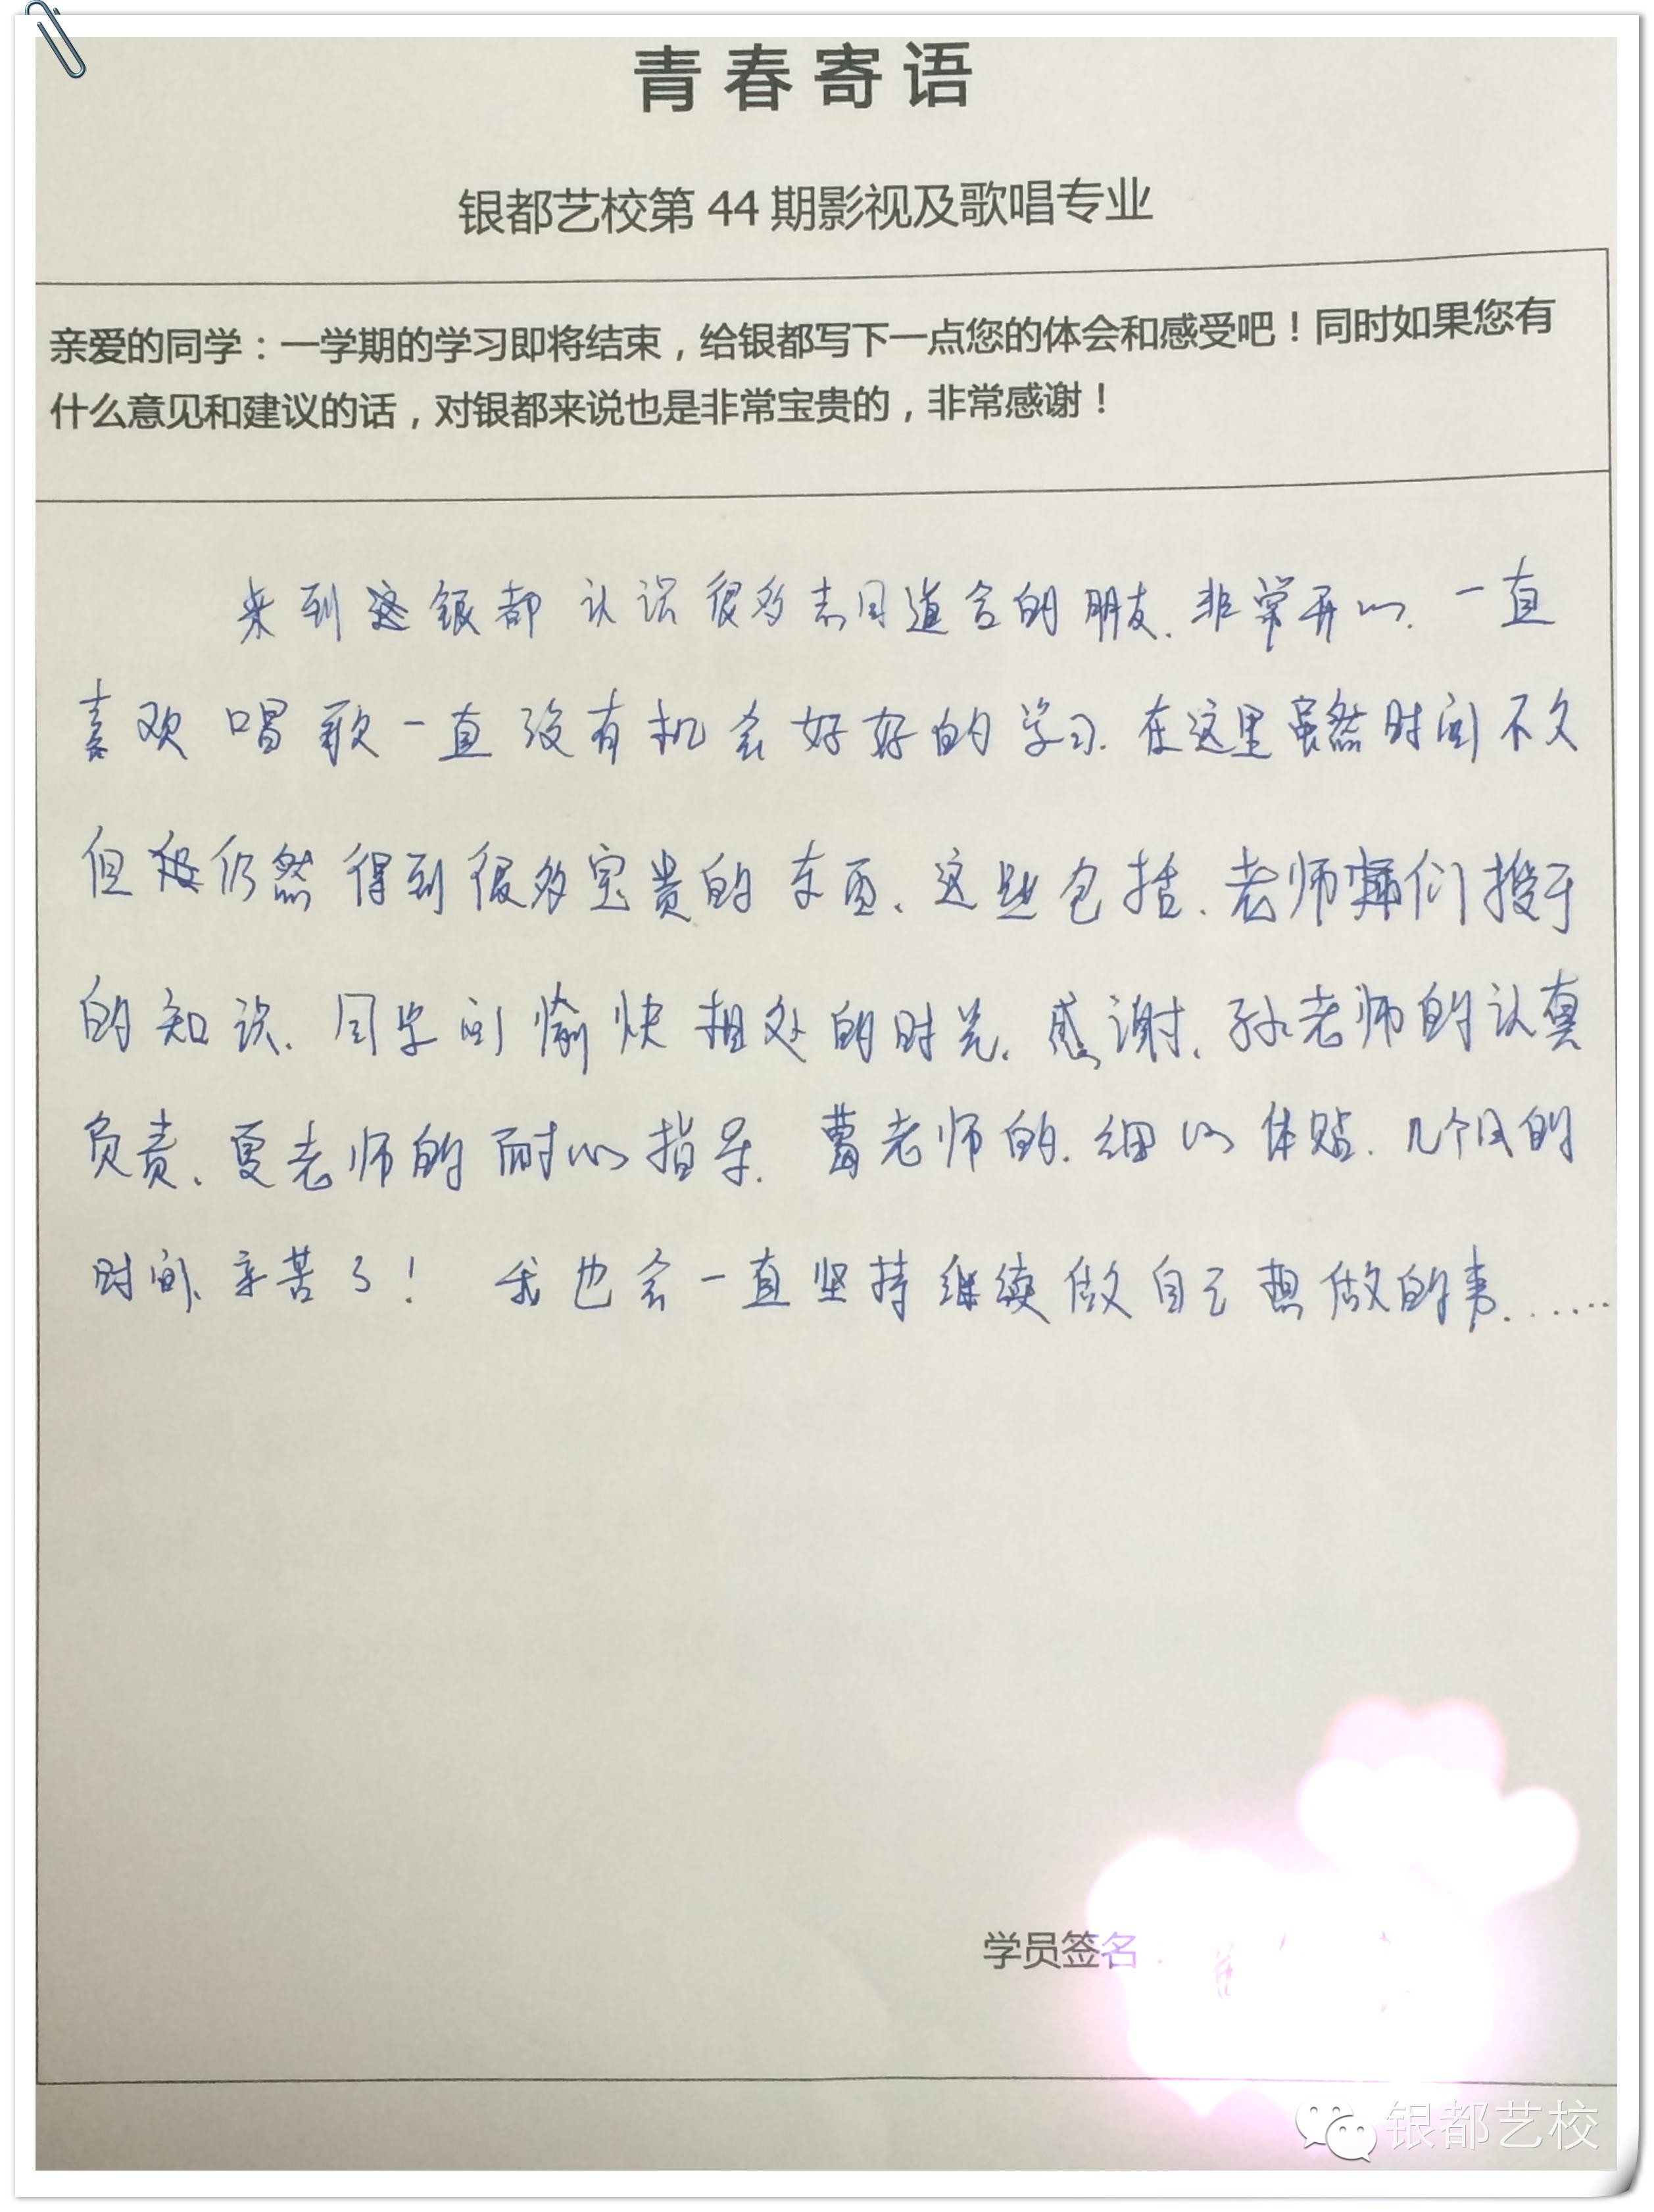 青春寄语
银都艺校第 44 期影视及歌唱专业
亲爱的同学：一学期的学习即将结束，给银都写下一点您的体会和感受吧！同时如果您有
什么意见和建议的话，对银都来说也是非常宝贵的，非常感谢！
来到这银都 认识很多志同道合的朋友.非常开心. 一直
喜欢 唱歌一直没有机会好好的学习.在这里虽然时间不久
但仍然得到很多宝贵的东西、这些包括、老师们授于
的知识、同学间愉快相处的时光、感谢、孙老师的认真
负责、夏老师的耐心指导. 曹老师的.细心体贴.几个月的
时间、辛苦了！ 我也会一直坚持继续做自己想做的事......
学员签名
银都艺校